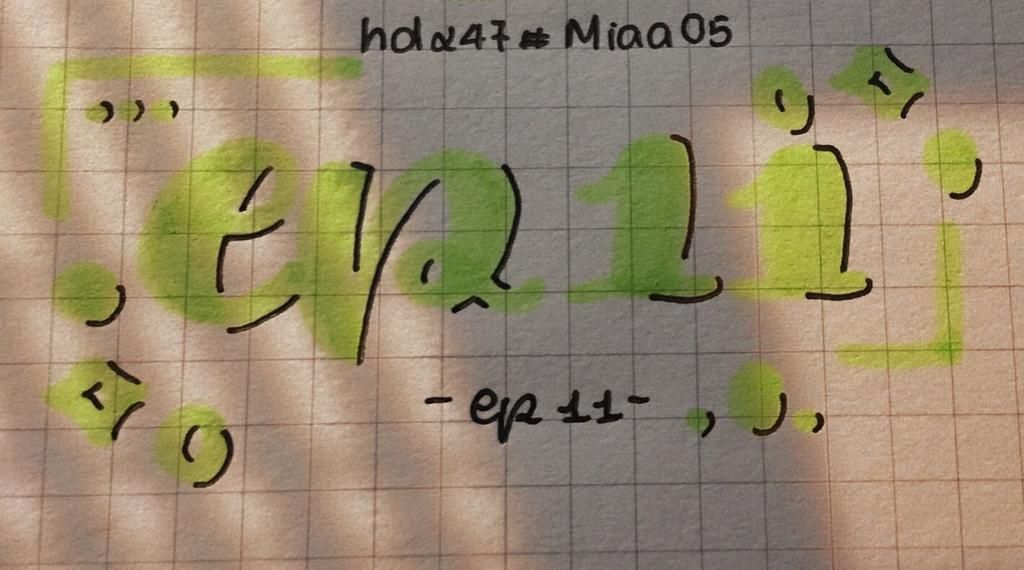 hdα47#Miaa05
ep11
-ep 11-